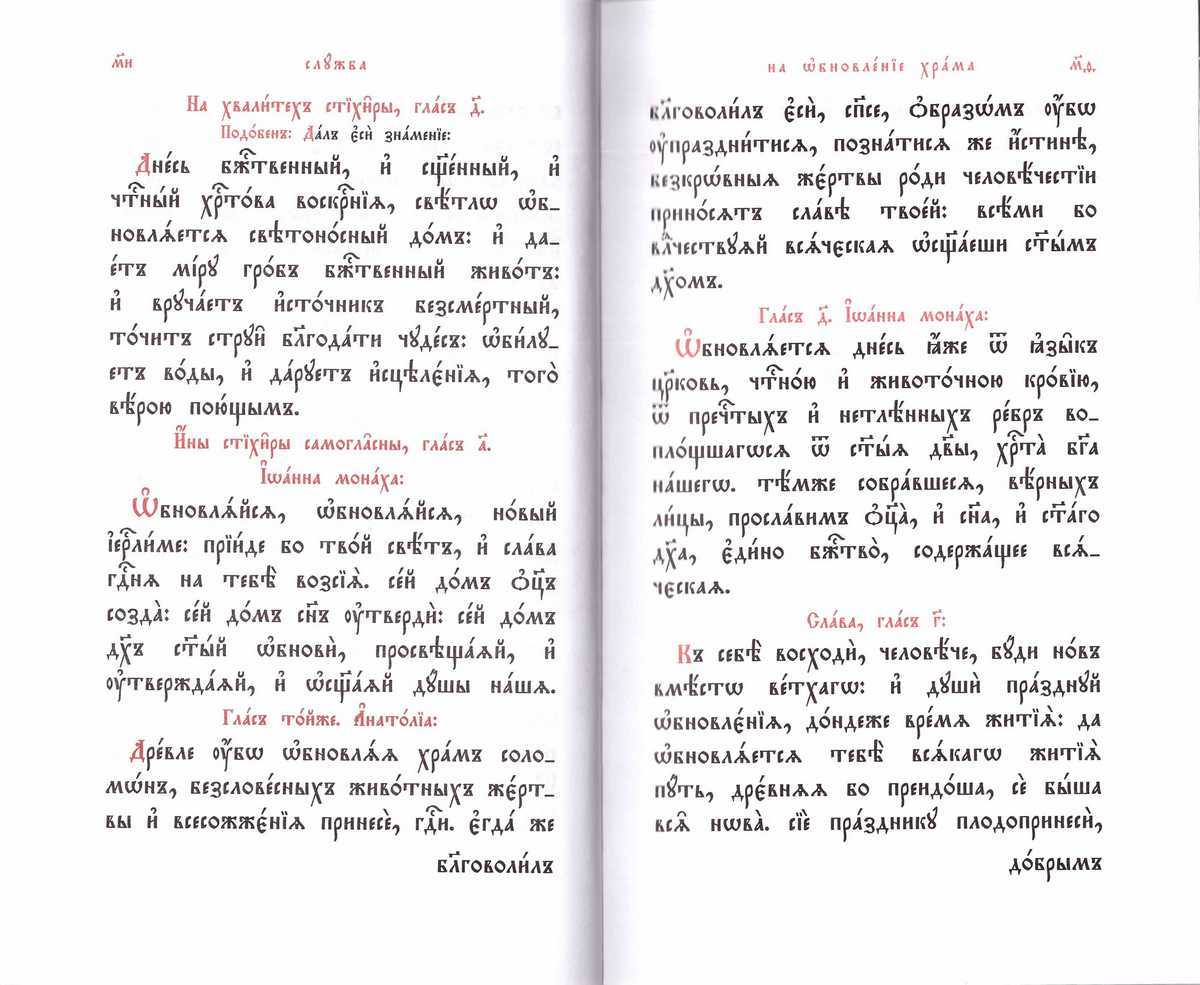 м҃и
слꙋ́жба
На хвали́техъ стїхи̑ры, гла́съ д҃.
Подо́бенъ: Да́лъ є҆сѝ зна́менїе:
Дне́сь бж҇твенный, и҆ сщ҃е́нный, и҆
чт҇ны́й хрⷭ҇то́ва воскрⷭ҇нїѧ, свѣ́тлѡ ѡ҆б_
новлѧ́етсѧ свѣтоно́сный до́мъ: и҆ да_
є́тъ мі́рꙋ гро́бъ бж҇твенный живо́тъ:
и҆ врꙋча́етъ и҆сто́чникъ безсме́ртный,
то́читъ стрꙋи̑ бл҃года́ти чꙋде́съ: ѡ҆би́лꙋ_
етъ во́ды, и҆ да́рꙋетъ и҆сцѣлє́нїѧ, того̀
вѣ́рою пою́щымъ.
И҆́ны стїхи̑ры самогла̑сны, гла́съ а҃.
І҆ѡа́нна мона́ха:
Ѡ҆бновлѧ́йсѧ, ѡ҆бновлѧ́йсѧ, но́вый
і҆ерⷭ҇ли́ме: прїи́де бо тво́й свѣ́тъ, и҆ сла́ва
гдⷭ҇нѧ на тебѣ̀ возсїѧ̀. се́й до́мъ ѻ҆ц҃ъ
созда̀: се́й до́мъ сн҃ъ ᲂу҆твердѝ: се́й до́мъ
дх҃ъ ст҃ы́й ѡ҆бновѝ, просвѣща́ѧй, и҆
ᲂу҆твержда́ѧй, и҆ ѡ҆сщ҃а́ѧй дꙋ́шы на́шѧ.
Гла́съ то́йже. А҆нато́лїа:
Дре́вле ᲂу҆́бѡ ѡ҆бновлѧ́ѧ хра́мъ соло_
мѡ́нъ, безслове́сныхъ живо́тныхъ жє́рт_
вы и҆ всесожжє́нїѧ принесѐ, гдⷭ҇и. є҆гда́ же
бл҃говоли́лъ
на ѡ҆бновле́нїе хра́ма
м҃ѳ.
бл҃говоли́лъ є҆сѝ, сп҃се, ѻ҆бразѡ́мъ ᲂу҆́бѡ
ᲂу҆праздни́тисѧ, позна́тисѧ же и҆́стинѣ,
безкрѡ́вныѧ жє́ртвы ро́ди человѣ́чествїи
прино́сѧтъ сла́вѣ твоє́й: всѣ́ми бо
влⷣчествꙋѧй всѧ́чєскаѧ ѡ҆сщ҃а́еши ст҃ы́мъ
дх҃омъ.
Гла́съ д҃. І҆ѡа́нна мона́ха:
Ѡ҆бновлѧ́етсѧ дне́сь ꙗ҆́же ѿ ꙗ҆зы̑къ
цр҃ковь, чт҇но́ю и҆ живото́чною кро́вїю,
ѿ пречⷭ҇тыхъ и҆ нетлѣ́нныхъ ре́бръ во_
пло́щшагѡсѧ ѿ ст҃ы́ѧ дв҃ы, хрⷭ҇та̀ бг҃а
на́шегѡ. тѣ́мже собра́вшесѧ, вѣ́рныхъ
ли́цы, просла́вимъ ѻ҆ц҃а̀, и҆ сн҃а, и҆ ст҃а́го
дх҃а, є҆ди́но бж҇тво̀, содержа́щее всѧ́_
чєскаѧ.
Сла́ва, гла́съ г҃:
Къ себѣ̀ восходѝ, человѣ́че, бꙋ́ди но́въ
вмѣ́стѡ ве́тхагѡ: и҆ дꙋшѝ пра́зднꙋй
ѡ҆бновлє́нїѧ, до́ндеже вре́мѧ житїѧ̀: да
ѡ҆бновлѧ́етсѧ тебѣ̀ всѧ́кагѡ житїѧ̀
пꙋ́ть, дрє́внѧѧ бо преидо́ша, сѐ бы́ша
всѧ̑ нѡва̀. сїѐ пра́здникꙋ плодопринесѝ,
до́брымъ